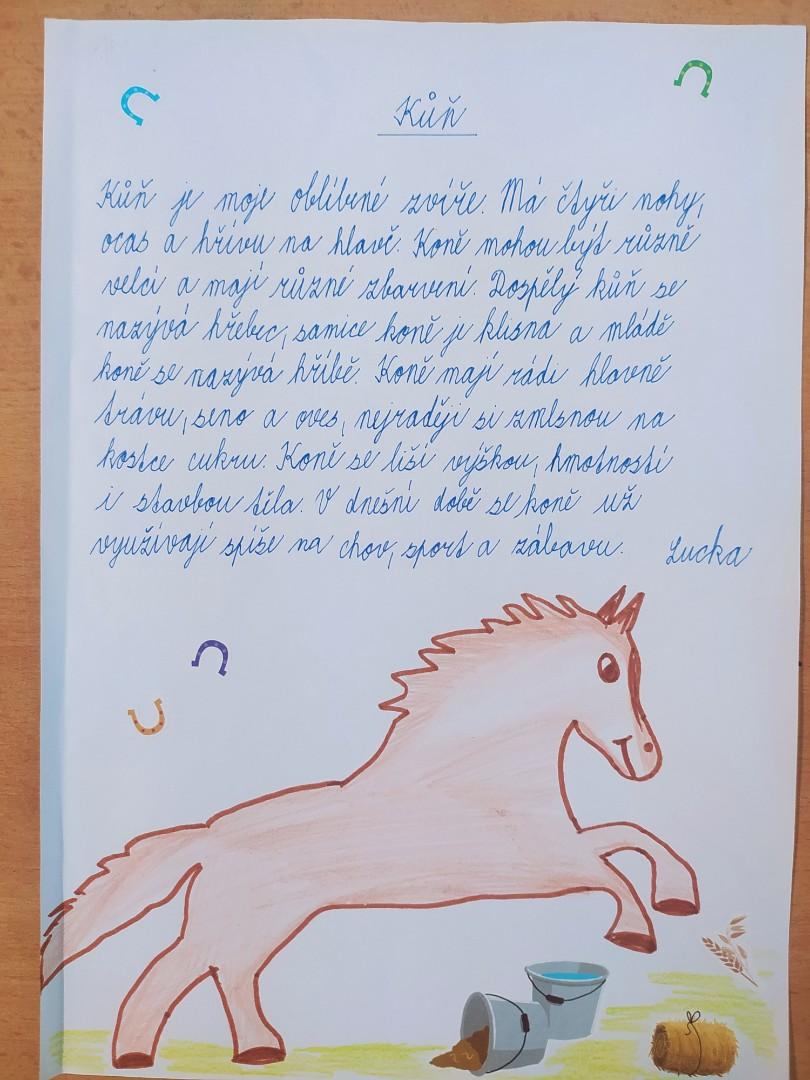 Kůň
Kůň je moje oblíbené zvíře. Má čtyři nohy,
ocas a hřívu na hlavě. Koně mohou být různě
velcí a mají různé zbarvení. Dospělý kůň se
nazývá hřebec, samice koně je klisna a mládě
koně se nazývá hříbě. Koně mají rádi hlavně
trávu, seno a oves, nejraději si zmlsnou na
kostce cukru. Koně se liší výškou, hmotností
i stavbou těla. V dnešní době se koně už
využívají spíše na chov, sport a zábavu. Lucka